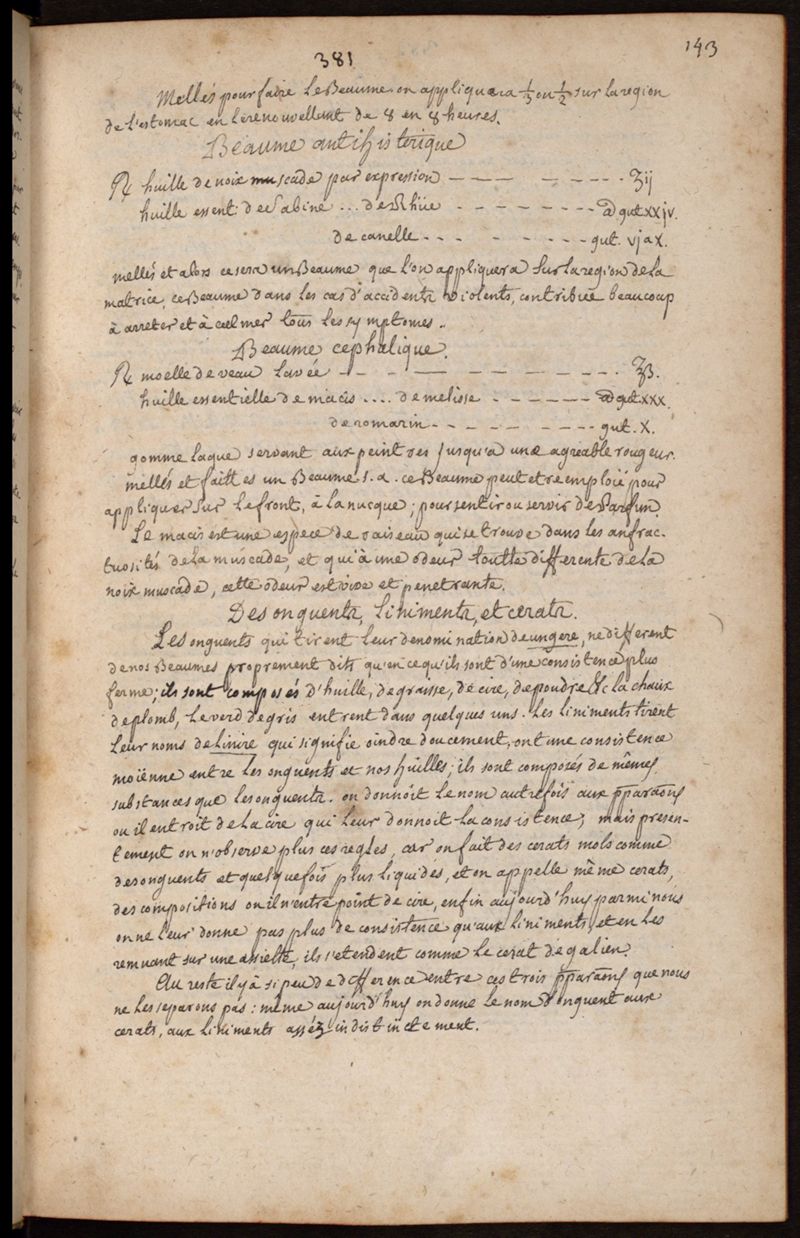 143
381
Mellés pour faire le Beaume on appliquera ⅓ ou ½ sur la region
de l'estomac en le renouvellant de 8 en 8 heures.
Beaume antihisterique
℞ huille de noix muscade par expression — — — — — — - - - ʒij
huille essent: de Sabine ... de Rhüe - - - - - - - - ā gut xxjv.
de canelle - - - - - - - - gut. vj a x.
mellés et alors ce sera un Beaume que l'on appliquera sur la region de la
matrice, ce Beaume dans les cas d'accidents violents, contribüe beaucoup
à arreter et à calmer tous les symptomes.
Beaume cephalique.
℞ moelle de veau lavée - - - — — - - - - - - ℥ß.
huille essentielle de macis .... de melisse - - - - - - - ā gut xxx.
de romarin - - - - - - - - - gut. X.
gomme laque servant aux peintres jusqu'a une agreable rougeur.
mellés et faittes un Beaume s.a. ce Beaume peut etre emploié pour
appliquer sur le front, à la nucque; pour sentir ou servir de Parfum
Le macis est une espece de raiseau qui se trouve dans les anfrac-
tuosités de la muscade, et qui à une odeur toutte differente de la
noix muscade, cette odeur est vive et penetrante.
Des onguents, liniments, et cerats.
Les onguents qui tirent leur denomination de ungere, ne different
de nos Beaumes proprement dits qu'en ce qu'ils sont d'une consistence plus
ferme; ils sont composés d'huille, de graisse, de cire, de poudre &c la chaux
de plomb, le verd de gris entrent dans quelques uns. Les liniments tirent
leur noms de linire qui signifie oindre doucement, ont une consistence
moïenne entre les onguents et nos huilles; ils sont composés de mêmes
substances que les onguents. on donnoit le nom autrefois aux pparaons
ou il entroit de la cire qui leur donnoit la consistence; mais presen-
tement on n'observe plus ces regles, car on fait des cerats mols comme
des onguents et quelquefois plus liquides, et on appelle même cerats,
des compositions ou il n'entre point de cire, enfin aujourd'huy parmi nous
on ne leur donne pas plus de consistence qu'aux liniments, et en les
remuant sur une assiette, ils s'etendent comme le cerat de galien.
Au reste il y à si peu de difference entre ces trois pparaons que nous
ne les separons pas: même aujourd'huy on donne le nom d'onguent aux
cerats, aux liniments asséz indistinctement.